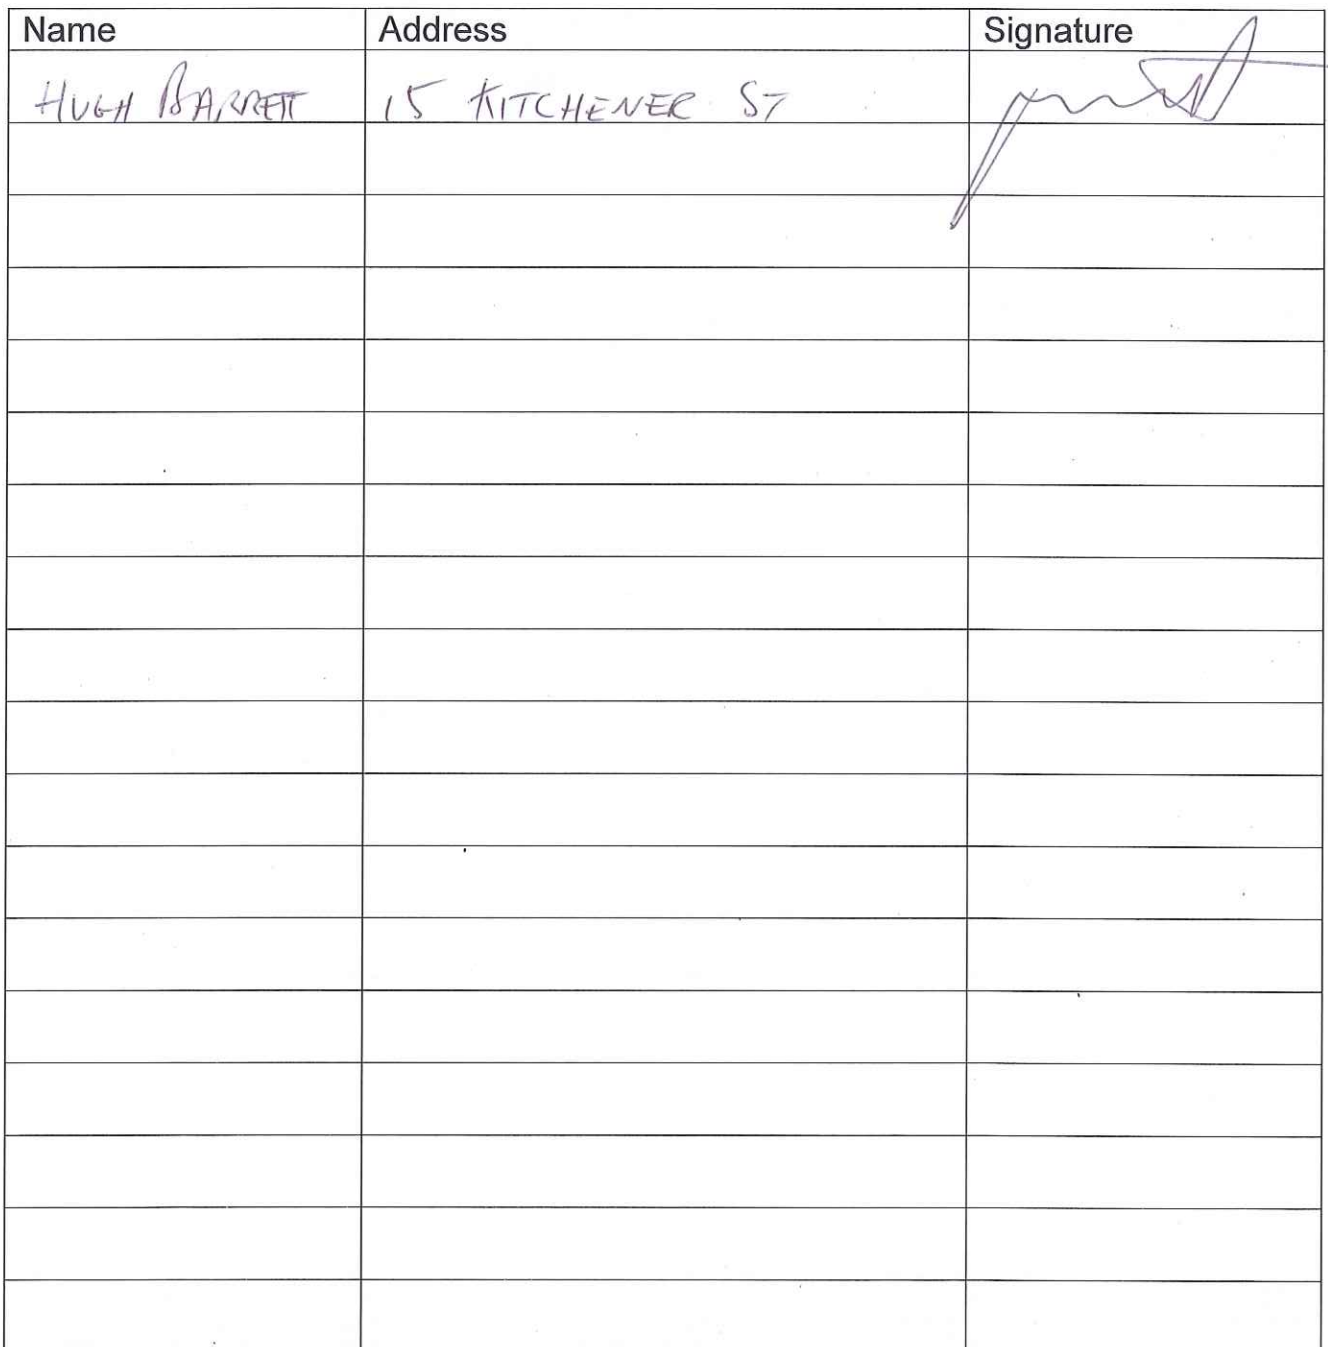 Name Address Signature
HUGH BARRETT 15 KITCHENER ST